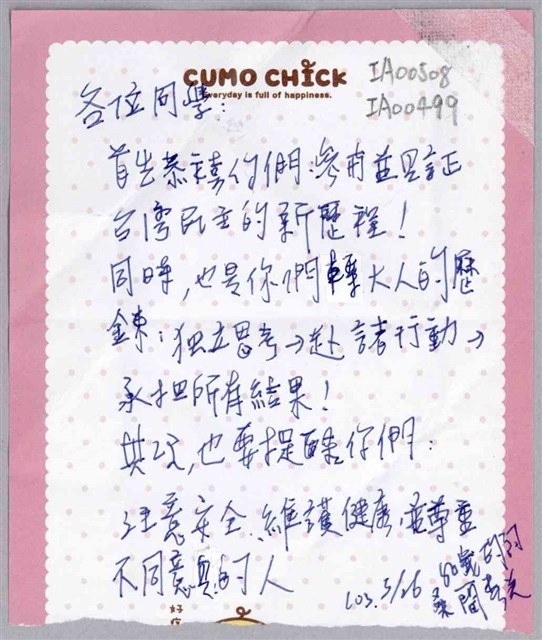 CUMO CHICK
Everyday is full of happiness.
IA00508
IA00499
各位同學：
首先恭禧你們參與並見證
台湾民主的新歷程！
同時，也是你們轉大人的歷
鍊：独立思考→赴諸行動→
承担所有結果！
其次，也要提醒你們：
注意安全、維護健康，
尊重
不同意見的人
103. 3/26
80歲